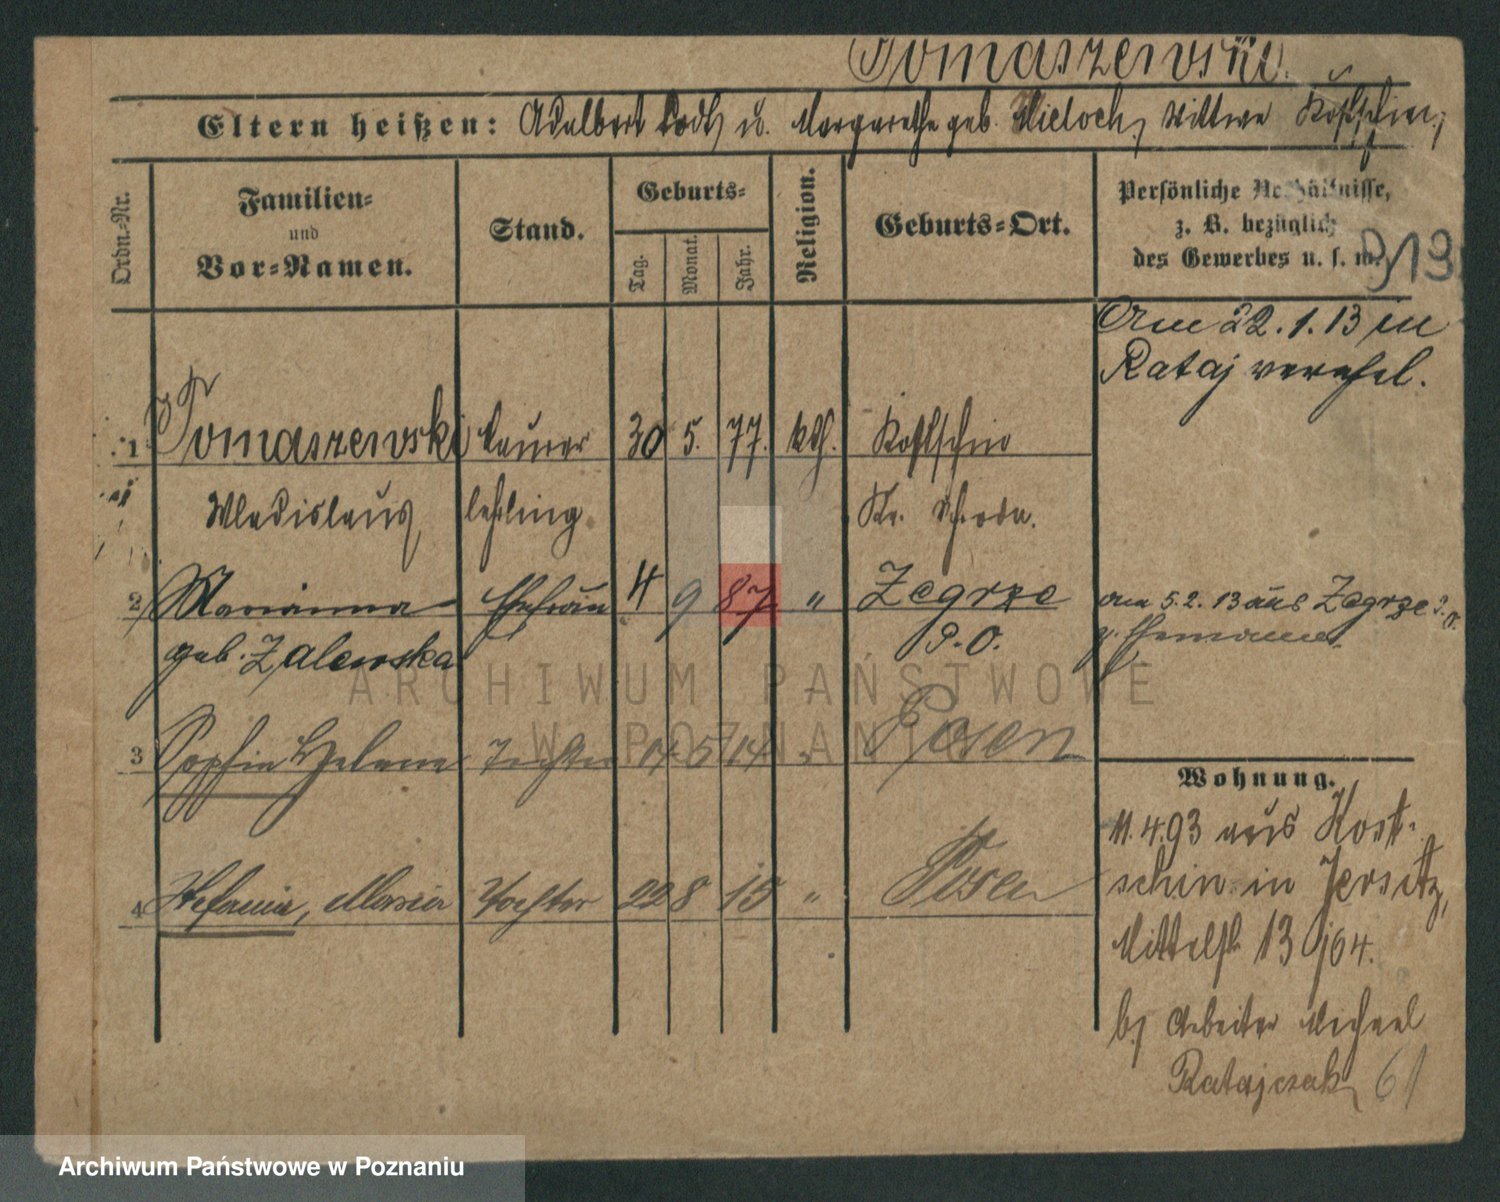 Tomaszewski.
Eltern heißen: Adalbert todt, u. Margarethe geb. Mieloch, Wittwe Kostschin;
Ordn.-Nr.
Familien-
und
Vor-Namen.
Stand.
Geburts-
Tag.
Monat.
Jahr.
Religion.
Geburts-Ort.
Persönliche Verhältnisse,
z. B. bezüglich
des Gewerbes u. s. w.
913
Am 22.1.13 in
Rataj verehel.
1 Tomaszewski Maurer 30 5. 77. kth. Kostschin
Wladislaus, lehrling Kr. Schroda.
2 Marianna Ehefrau 4 9 87 " Zegrze am 5.2.13 aus Zegrze P.O.
geb. Zalewska P.O. z. Ehemann.
3 Sophia Helene Tochter 14 5 14 " Posen
Wohnung.
11.4.93 aus Kost-
schin in Jersitz,
4 Stefania, Maria Tochter 22 8 15 " Posen
Mittelstr. 13
b/ Arbeiter Michael
Ratajczak 61
ARCHIWUM PAŃSTWOWE
W POZNANIU
Archiwum Państwowe w Poznaniu